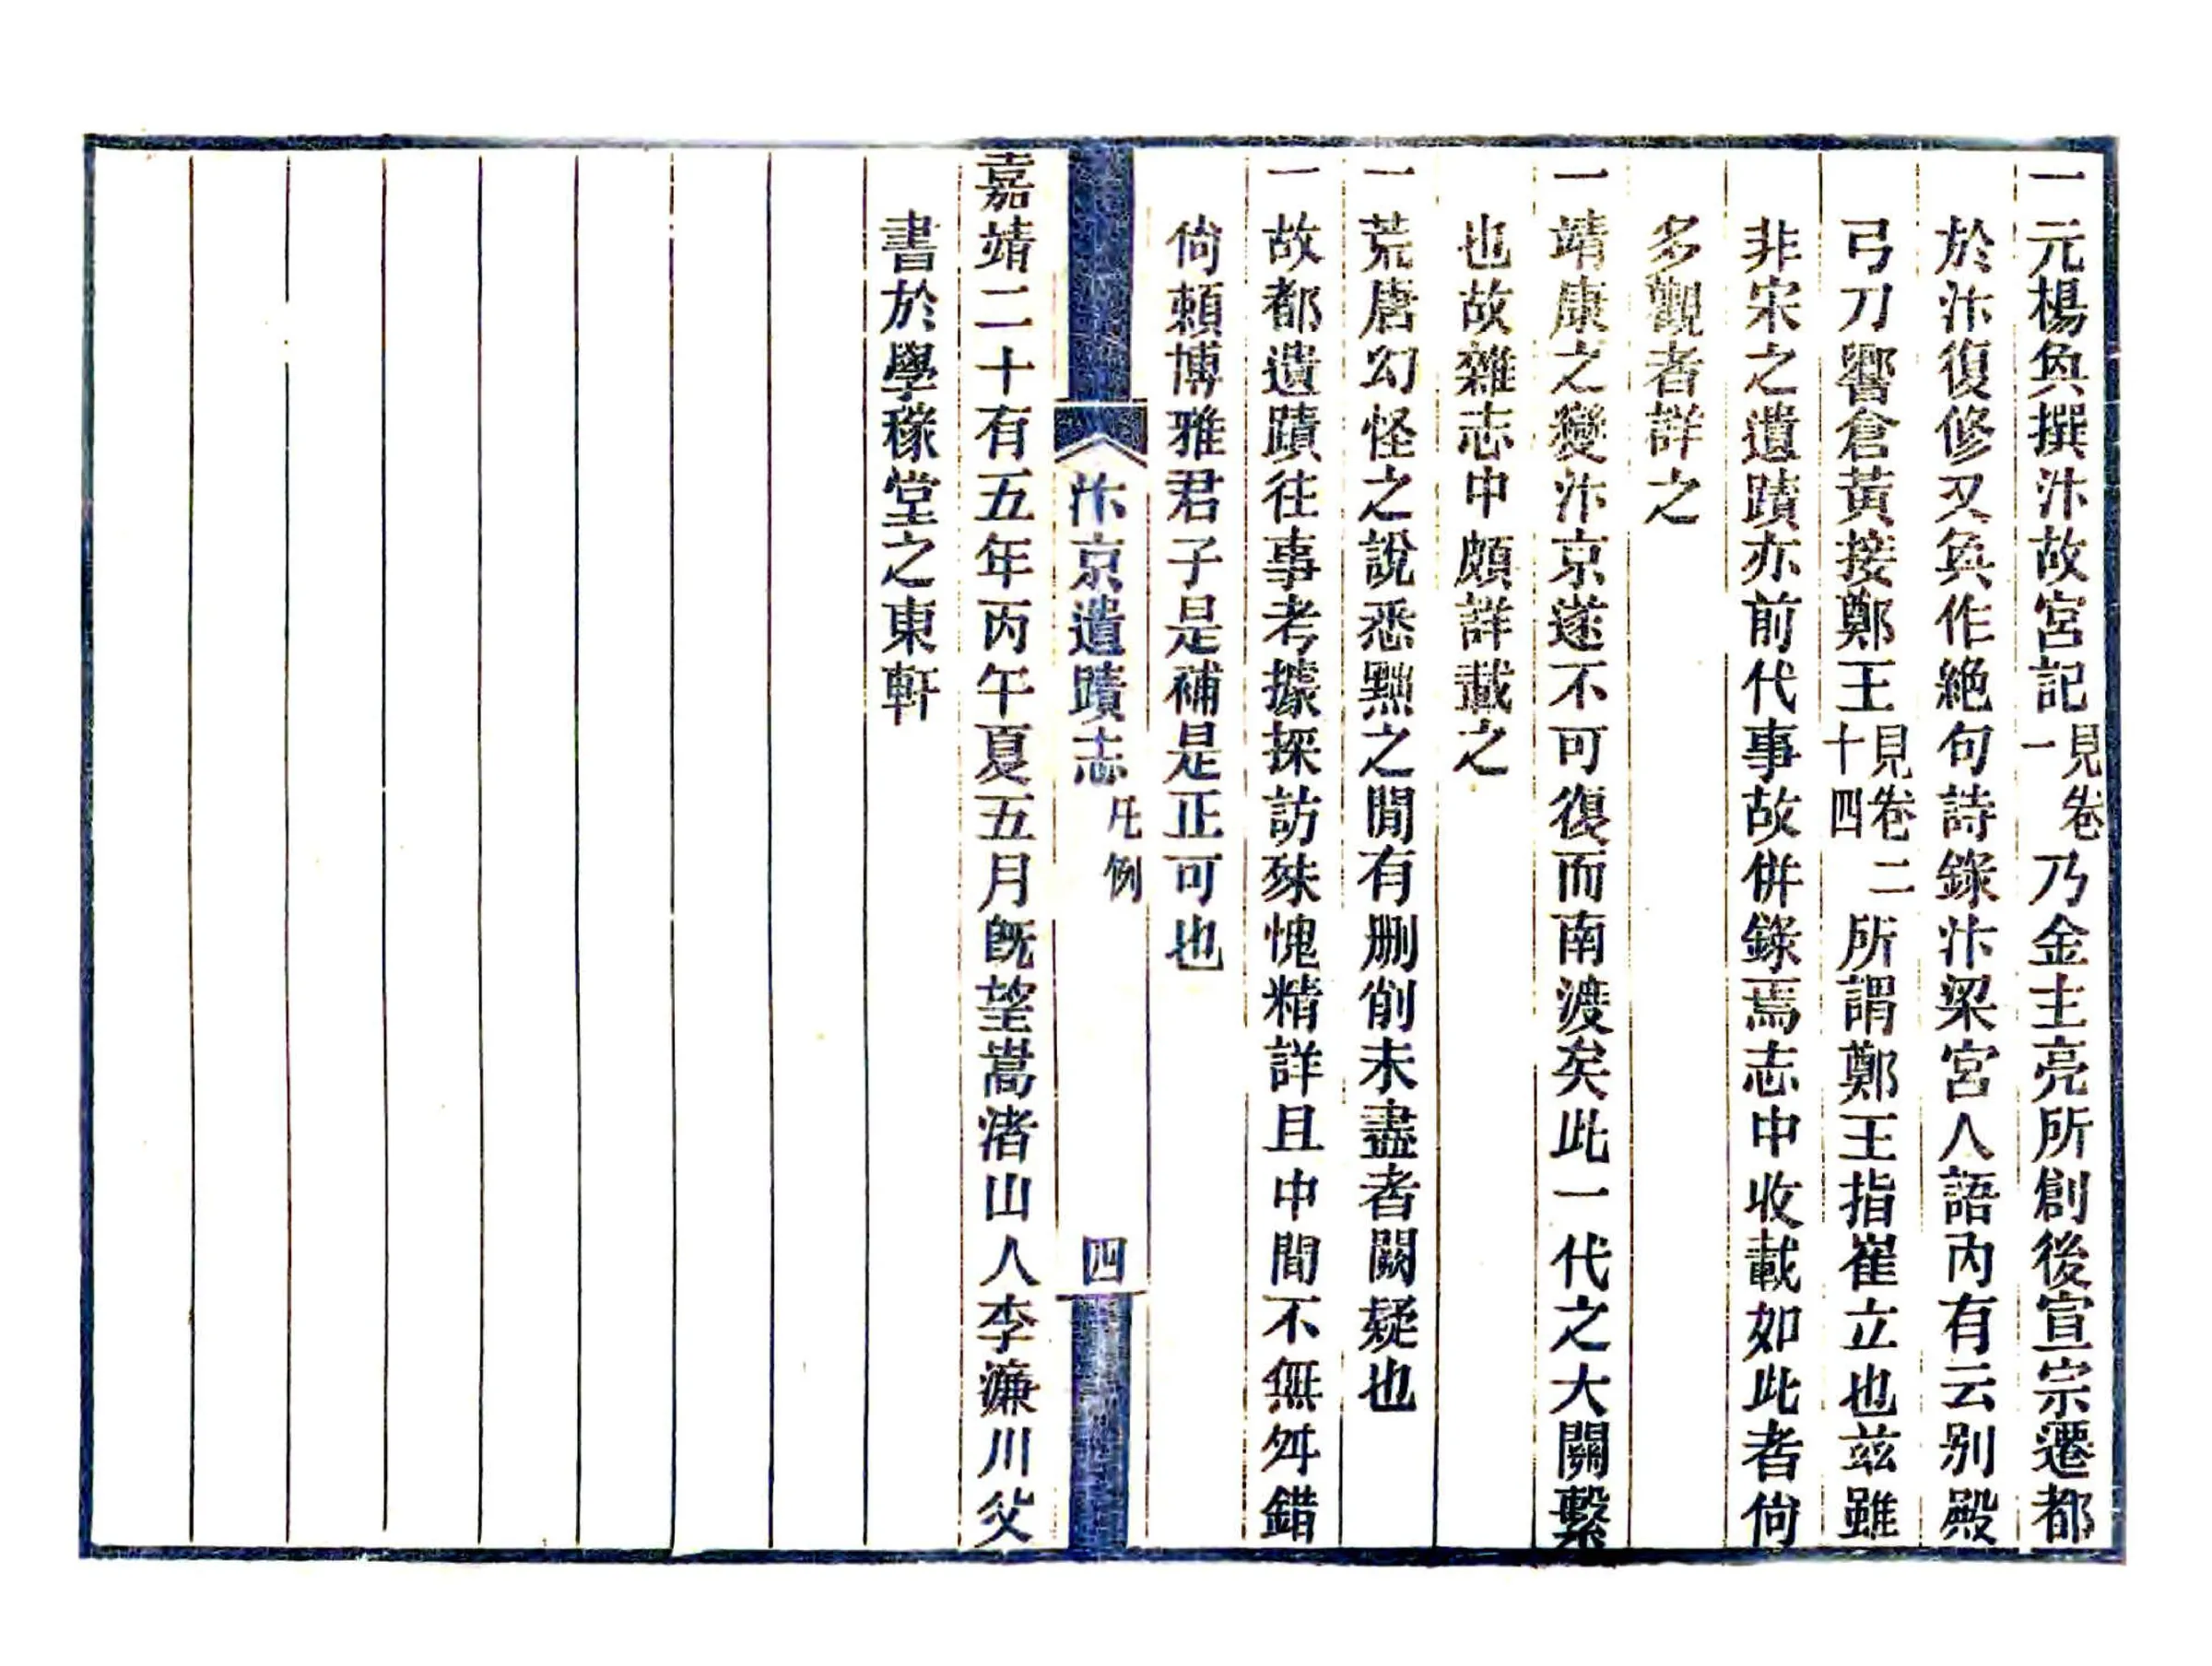 一元楊奐撰汴故宮記見卷一乃金主亮所創後宣宗遷都
於汴復修又奐作絶句詩錄汴梁宮人語內有云別殿
弓刀響倉黃接鄭王見卷二十四所謂鄭王指崔立也茲雖
非宋之遺蹟亦前代事故併錄焉志中收載如此者尙
多觀者詳之
一靖康之變汴京遂不可復而南渡矣此一代之大關繫
也故雜志中頗詳載之
一荒唐幻怪之說悉黜之閒有删削未盡者闕疑也
一故都遺蹟往事考據採訪殊愧精詳且中間不無舛錯
尙賴博雅君子是補是正可也
汴京遺蹟志 凡例 四
嘉靖二十有五年丙午夏五月旣望嵩渚山人李濂川父
書於學稼堂之東軒